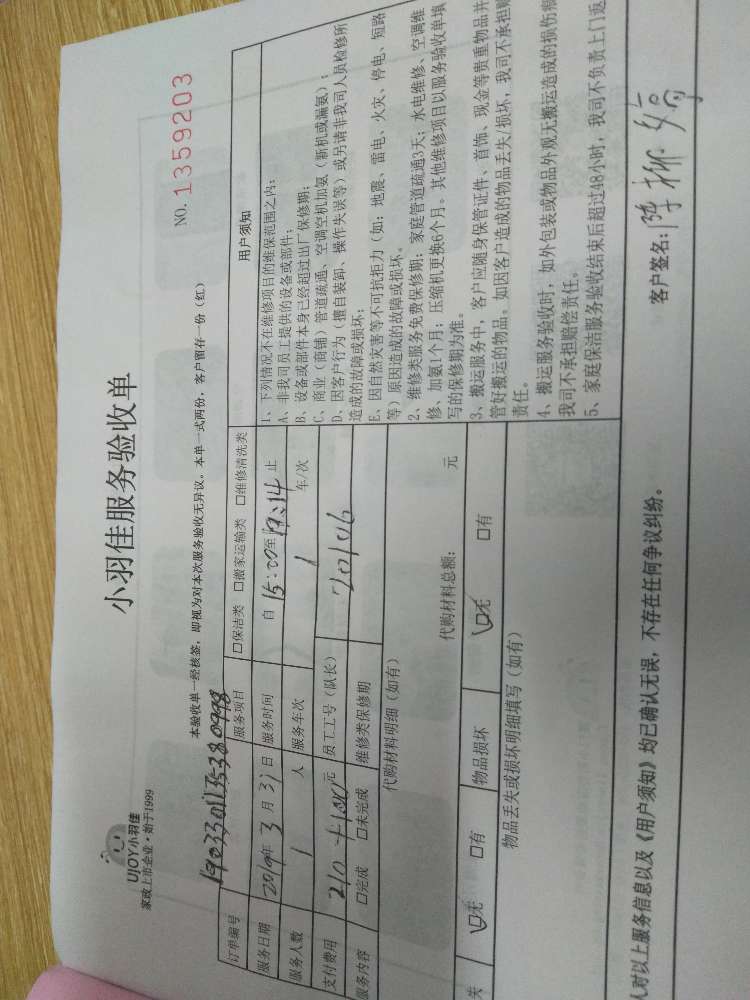 UJOY小羽佳
家政上市企业·始于1999
小羽佳服务验收单
NO. 1359203
本验收单一经核签，即视为对本次服务验收无异议。本单一式两份，客户留存一份（红）
订单编号
服务项目 □保洁类 □搬家运输类 □维修清洗类
服务日期 2019年 3 月 31 日 服务时间 自 15:00至 19:14 止
服务人数 1 人 服务车次 1 车/次
支付费用 210 元 员工工号（队长） 20106
服务内容 □完成 □未完成 维修类保修期
代购材料明细（如有）
代购材料总额： 元
失 ☑无 □有 物品损坏 ☑无 □有
物品丢失或损坏明细填写（如有）
用户须知
1、下列情况不在维修项目的维保范围之内：
A、非我司员工提供的设备或部件；
B、设备或部件本身已经超过出厂保修期；
C、商业（商铺）管道疏通、空调空机加氨（新机或漏氨）；
D、因客户行为（擅自装卸、操作失误等）或另请非我司人员检修所
造成的故障或损坏；
E、因自然灾害等不可抗拒力（如：地震、雷电、火灾、停电、短路
等）原因造成的故障或损坏。
2、维修类服务免费保修期：家庭管道疏通3天；水电维修、空调维
修、加氨1个月；压缩机更换6个月。其他维修项目以服务验收单填
写的保修期为准。
3、搬运服务中，客户应随身保管证件、首饰、现金等贵重物品并
管好搬运的物品。如因客户造成的物品丢失/损坏，我司不承担赔
责任。
4、搬运服务验收时，如外包装或物品外观无搬运造成的损伤痕
我司不承担赔偿责任。
5、家庭保洁服务验收结束后超过48小时，我司不负责上门返
人对以上服务信息以及《用户须知》均已确认无误，不存在任何争议纠纷。
客户签名：